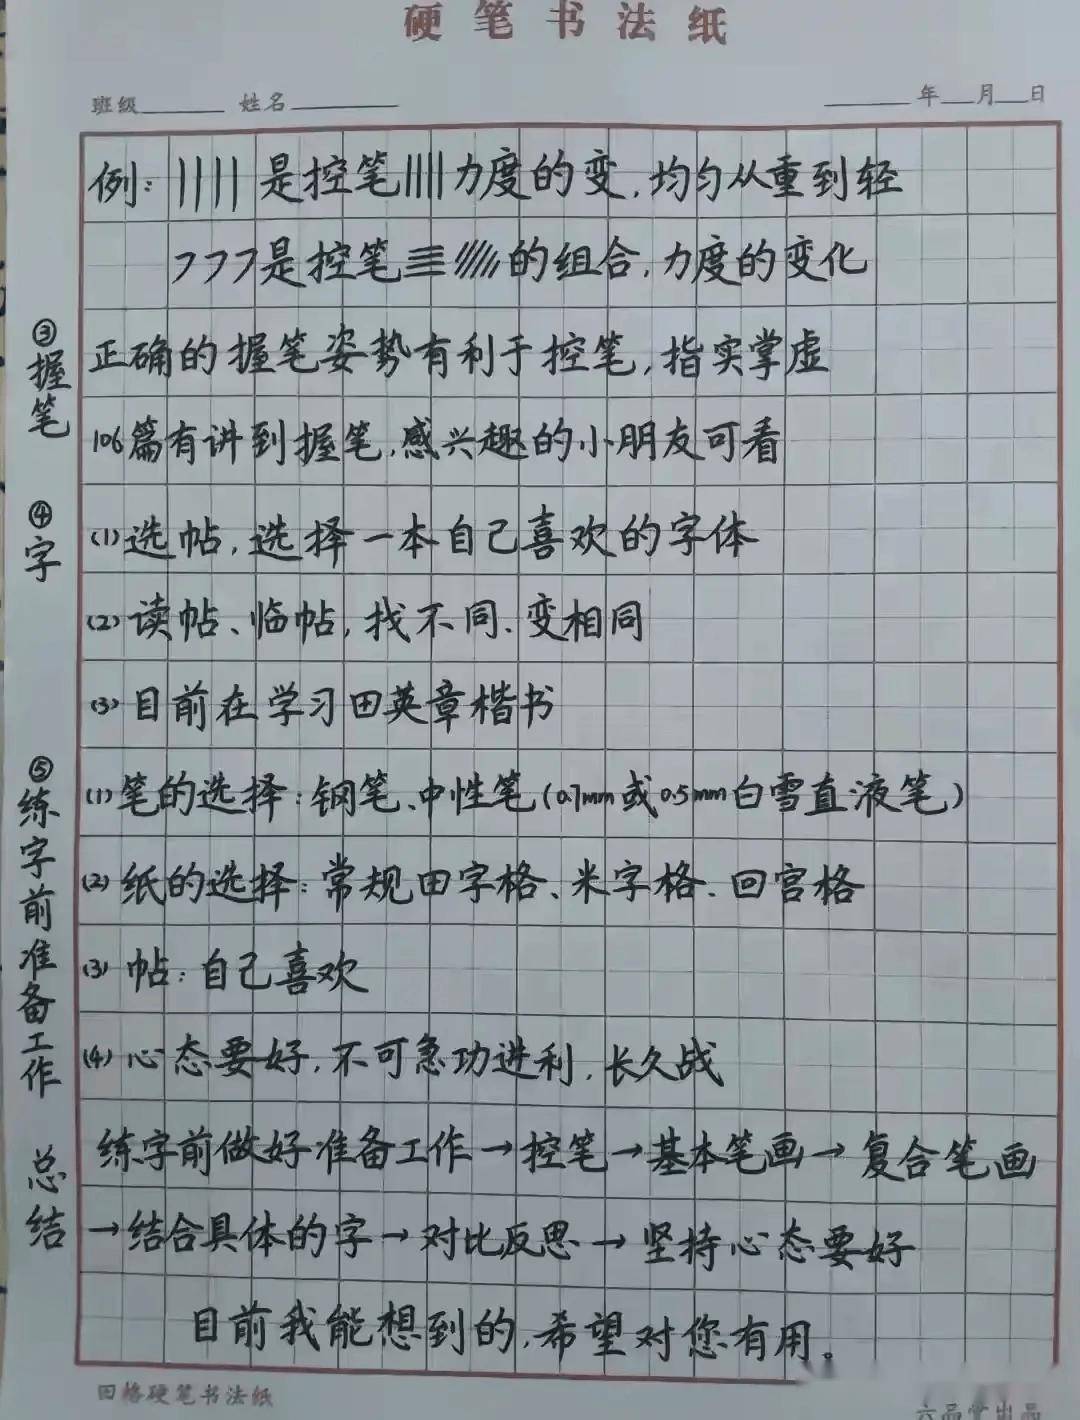 硬笔书法纸
班级 姓名 年 月 日
例: 是控笔 力度的变,均匀从重到轻
是控笔 的组合,力度的变化
③握笔
正确的握笔姿势有利于控笔,指实掌虚
106篇有讲到握笔,感兴趣的小朋友可看
④字
(1)选帖,选择一本自己喜欢的字体
(2)读帖、临帖,找不同、变相同
(3)目前在学习田英章楷书
⑤练字前准备工作
(1)笔的选择:钢笔、中性笔(0.7mm或0.5mm白雪直液笔)
(2)纸的选择:常规田字格、米字格、回宫格
(3)帖:自己喜欢
(4)心态要好,不可急功进利,长久战
总结
练字前做好准备工作→控笔→基本笔画→复合笔画
→结合具体的字→对比反思→坚持心态要好
目前我能想到的,希望对您有用。
回格硬笔书法纸
六品堂出品